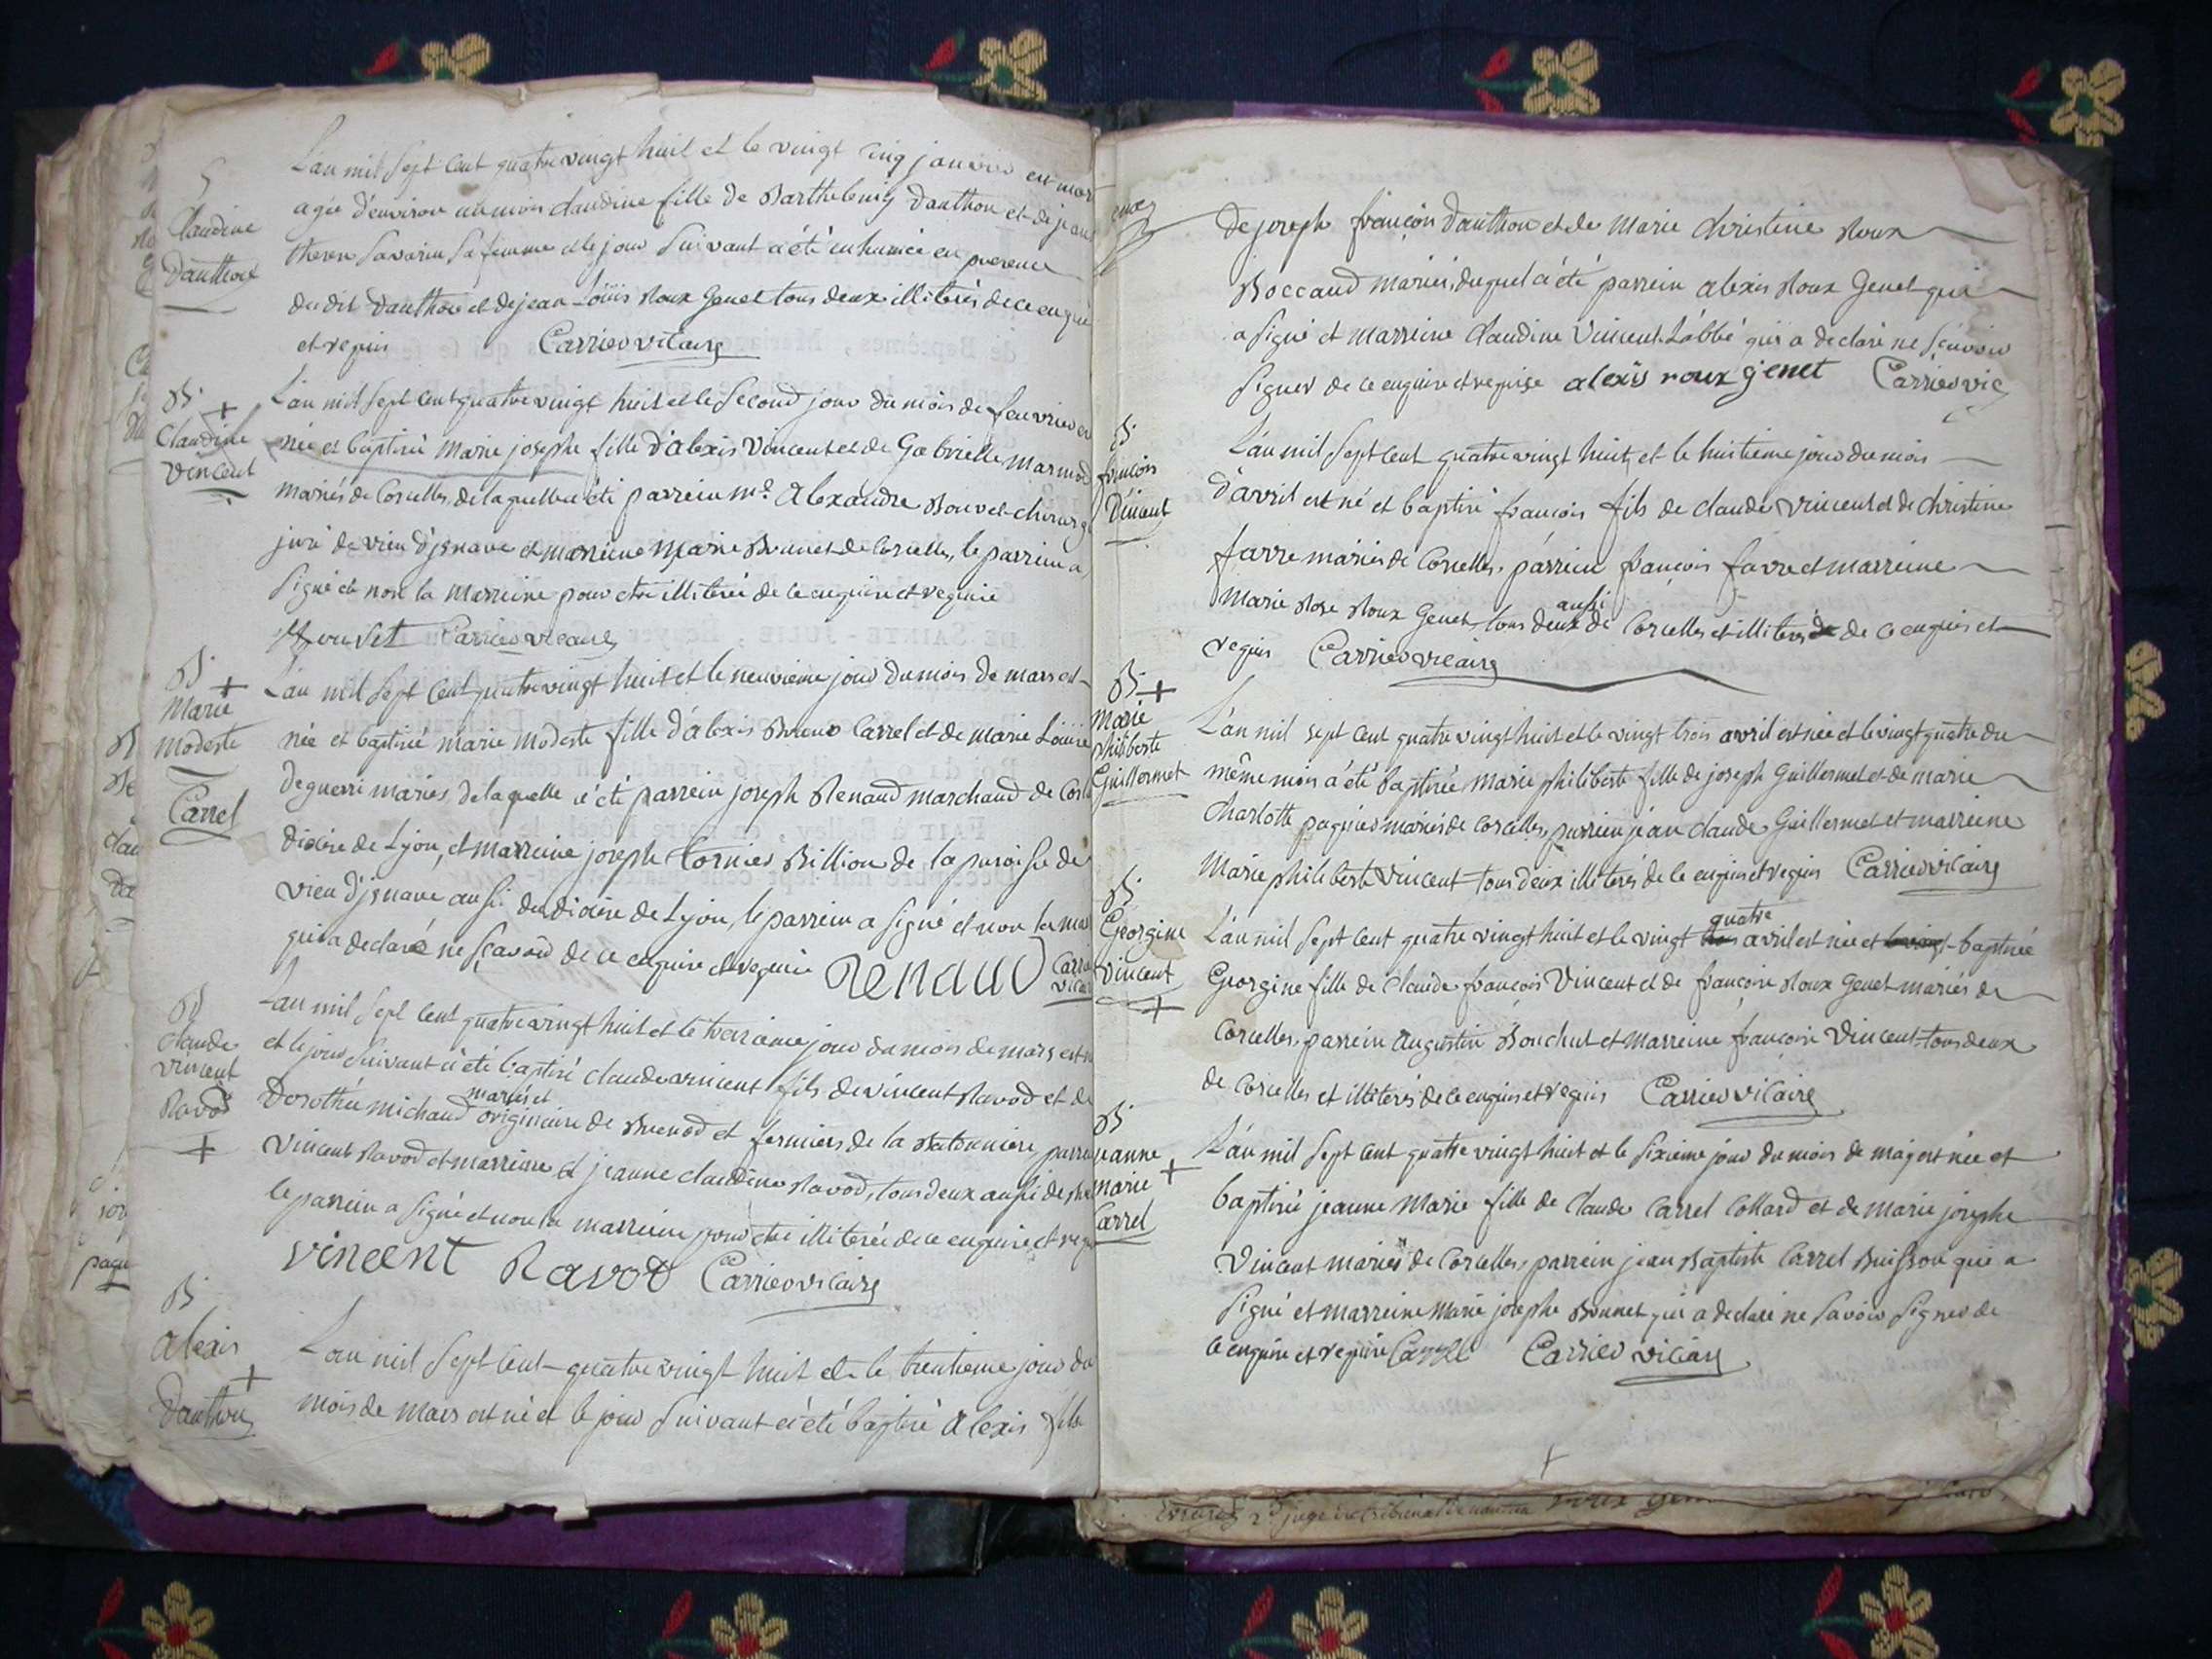 S
Claudine
Danthon
L'an mil sept cent quatre vingt huit et le vingt cinq janvier est mor
agée d'environ un mois claudine fille de Barthelemy Danthon et de jean
therese Savarin sa femme et le jour suivant a été enhumée en presence
du dit Danthon et de jean Loüis Roux Genet tous deux illiterés de ce enquis
et requis Carrier vicaire
B
+
Claudine
Vincent
L'an mil sept cent quatre vingt huit et le second jour du mois de fevrier est
née et baptisée Marie josephe fille d'alexis Vincent et de Gabrielle Marmod
mariés de Corcelles, de laquelle a été parrein me Alexandre Bouvet chirurg
juré de vieu d'jsenave et marreine Marie Bonnet de Corcelles, le parrein a
signé et non la marreine pour etre illiterée de ce enquise et requise
Bouvet Carrier vicaire
B
+
Marie
modeste
Carrel
L'an mil sept cent quatre vingt huit et le neuvieme jour du mois de mars est
née et baptisée marie modeste fille d'alexis Carrel et de marie Loüise
Deguerri mariés, de laquelle a été parrein joseph Renaud marchand de Corl
diocèse de Lyon, et marreine josephe Billion de la paroisse de
vieu d'jsenave aussi du diocèse de Lyon, le parrein a signé et non la mar
qui a declaré ne sçavoir de ce enquise et requise Renaud Carrier
vicai
B
claude
vincent
Ravod
+
L'an mil sept cent quatre vingt huit et le treizième jour du mois de mars est n
et le jour suivant a été baptisé claude vincent fils de vincent Ravod et de
mariés et
Dorothée michaud originaire de Brenod et fermiers de la parrein
Vincent Ravod et marreine jeanne claudine Ravod, tous deux aussi de
le parrein a signé et non la marreine pour etre illiterée de ce enquise et requ
vincent Ravod Carrier vicaire
B
alexis
+
Danthon
L'an mil sept cent quatre vingt huit et le trentieme jour du
mois de mars est né et le jour suivant a été baptisé Alexis fils
de joseph françois Danthon et de Marie Christine Roux
Boccand mariés, duquel a été parrein alexis Roux Genet qui
a signé et marreine claudine Vincent L'abbé qui a declaré ne sçavoir
signer de ce enquise et requise alexis roux genet Carrier vic
B
françois
Vincent
L'an mil sept cent quatre vingt huit et le huitieme jour du mois
d'avril est né et baptisé françois fils de claude Vincent et de Christine
favre mariés de Corcelles. parrein françois favre et marreine
aussi
Marie Rose Roux Genet, tous deux de Corcelles et illiterés de ce enquis et
requis Carrier vicaire
B
+
marie
philiberte
Guillermet
L'an mil sept cent quatre vingt huit et le vingt trois avril est née et le vingt quatre du
même mois a été baptisée Marie philiberte fille de joseph Guillermet et de marie
Charlotte paquier mariés de Corcelles, parrein jean claude Guillermet et marreine
Marie philiberte Vincent tous deux illiterés de ce enquis et requis Carrier vicaire
B
Georgine
Vincent
+
quatre
L'an mil sept cent quatre vingt huit et le vingt trois avril est née et baptisée
Georgine fille de claude françois Vincent et de françoise Roux Genet mariés de
Corcelles, parrein Augustin Bouchut et marreine françoise Vincent tous deux
de Corcelles et illiterés de ce enquis et requis Carrier vicaire
B
jeanne
marie
+
Carrel
L'an mil sept cent quatre vingt huit et le sixieme jour du mois de may est née et
baptisée jeanne Marie fille de claude Carrel Collard et de marie josephe
Vincent mariés de Corcelles, parrein jean Baptiste Carrel Buisson qui a
signé et marreine Marie josephe Bonnet qui a declaré ne savoir signer de
ce enquise et requise Carrel Carrier vicaire